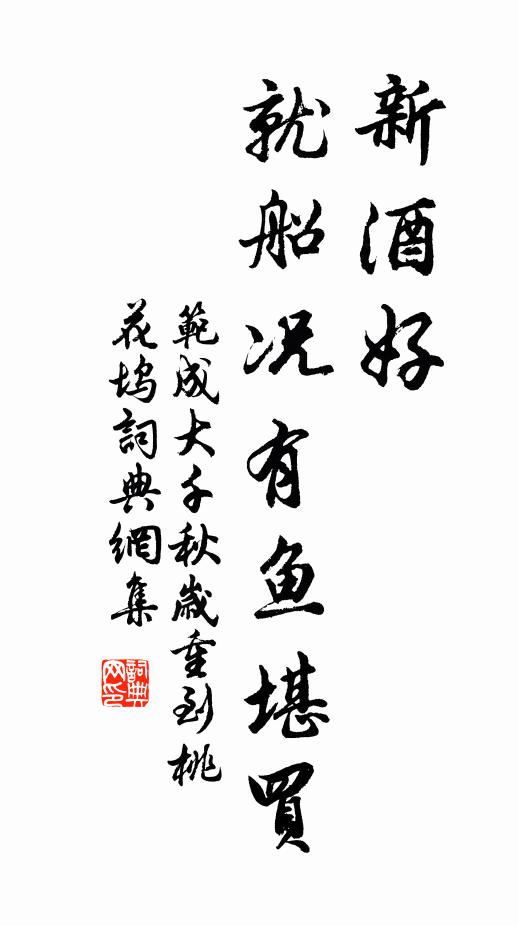 新酒好
就船况有鱼堪買
範成大千秋歲重到桃
花塢詞典網集
詞典
网印